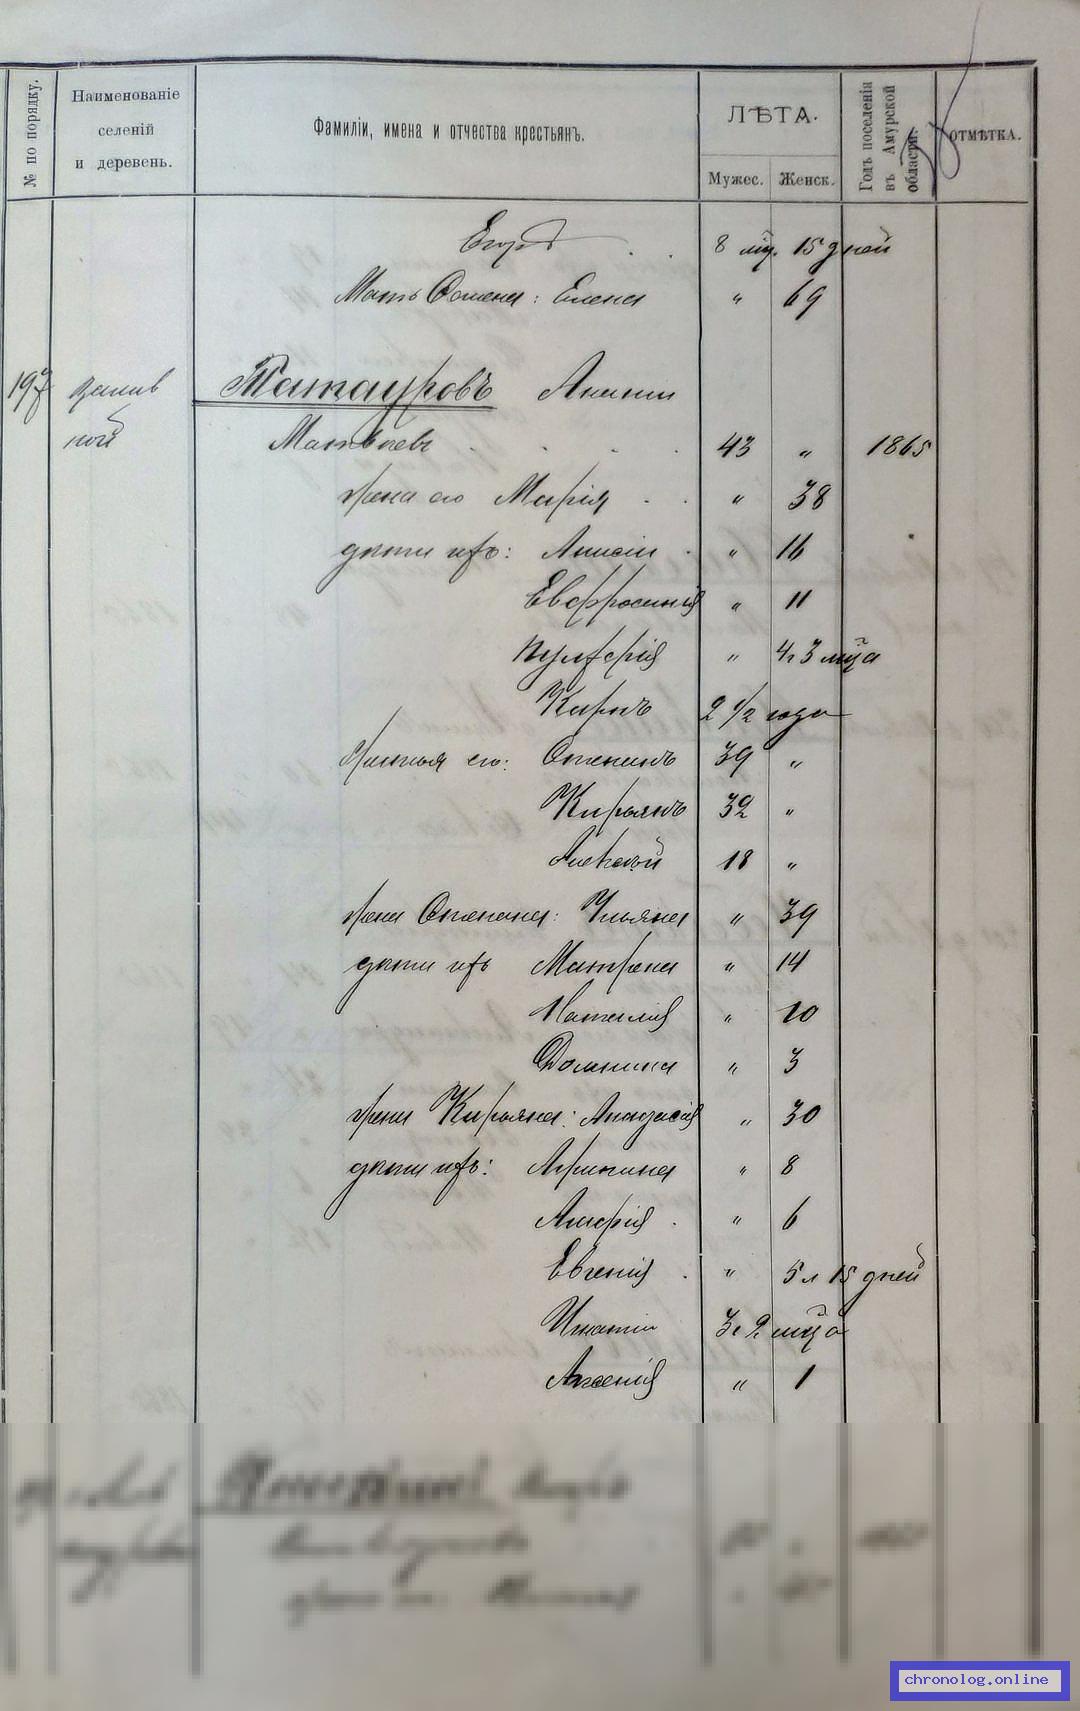 № по порядку.
Наименованіе
селеній
и деревень.
Фамиліи, имена и отчества крестьянъ.
ЛѢТА.
Мужес. Женск.
Годъ поселенія
въ Амурской
области.
ОТМѢТКА.
Егоръ . . 8 мц. 15 дней
Мать Семена: Елена " 69
197 Заливной Татауровъ Ананій
Матвѣевъ . . . . 43 " 1865
жена его Марія . . " 38
дѣти ихъ: Анисія . " 16
Евфросинія " 11
Пулхерія " 4 г 3 мца
Киръ 2 1/2 года
братья его: Степанъ 39 "
Кирьянъ 32 "
Алексѣй 18 "
жена Степана: Ульяна " 39
дѣти ихъ Матрена " 14
Наталія " 10
Домнина " 3
жена Кирьяна: Анастасія " 30
дѣти ихъ: Агрипина " 8
. " 6
Евгенія . " 5 л 15 дней
Игнатій 3 г. 2 мца
" 1
chronolog.online